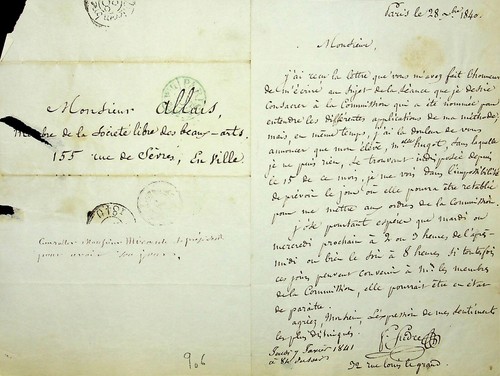 Monsieur Allais,
Membre de la Société libre des beaux-arts.
155 rue de Sèvres, En Ville
Consulter Monsieur
pour avoir son jour.
906
Paris le 28 Xbre 1840.
Monsieur,
j'ai reçu la lettre que vous m'avez fait l'honneur
de m'écrire au sujet de la Séance que je désire
consacrer à la Commission qui a été nommée pour
entendre les différentes applications de ma méthode;
mais, en même temps, j'ai la douleur de vous
annoncer que mon élève, Melle Hugot, sans laquelle
je ne puis rien, se trouvant indisposée depuis
le 15 de ce mois, je me vois dans l'impossibilité
de prévoir le jour où elle pourra être rétablie
pour me mettre aux ordres de la Commission.
J'ose pourtant espérer que mardi ou
mercredi prochain à 2 ou 3 heures de l'après-
midi ou bien le soir à 8 heures si toutefois
ces jours peuvent convenir à Mrs les membres
de la Commission, elle pourrait être en état
de paraître.
agréez, Monsieur, l'expression de mes sentiments
les plus distingués.
Jeudi 7 Janvier 1841
à 8h du soir
32 rue louis le grand.